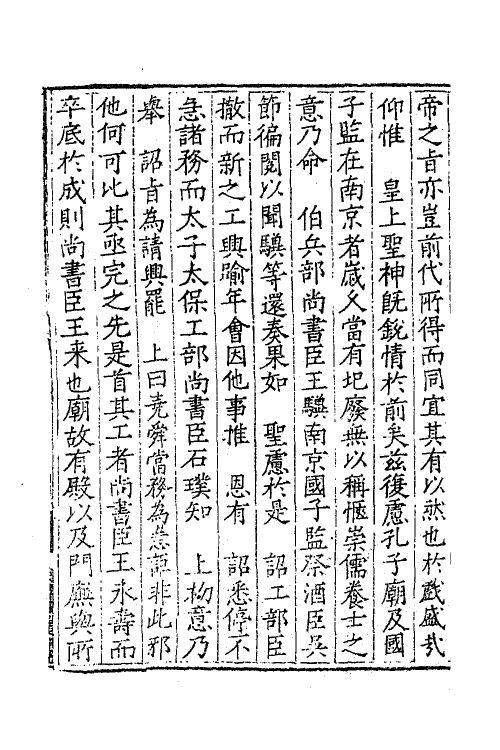 帝之旨亦豈前代所得而同宜其有以然也於戲盛哉
仰惟　皇上聖神旣銳情於前矣茲復慮孔子廟及國
子監在南京者歲久當有圮廢無以稱愜崇儒養士之
意乃命　伯兵部尚書臣王驥南京國子監祭酒臣吳
節徧閱以聞驥等還奏果如　聖慮於是　詔工部臣
撤而新之工興踰年會因他事推　恩有　詔悉停不
急諸務而太子太保工部尚書臣石璞知　上初意乃
舉　詔旨為請興罷　上曰堯舜當務為急詎非此邪
他何可比其亟完之先是首其工者尚書臣王永壽而
卒底於成則尚書臣王来也廟故有殿以及門廡與所